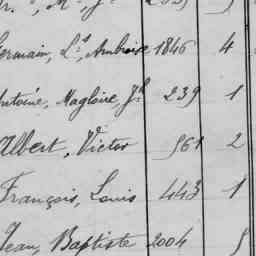 ermain, Ls, Ambroise 1846 4
ntoine, Magloire, Jh 239 1
Albert, Victor 961 2
François, Louis 443 1
Jean, Baptiste 2004 5